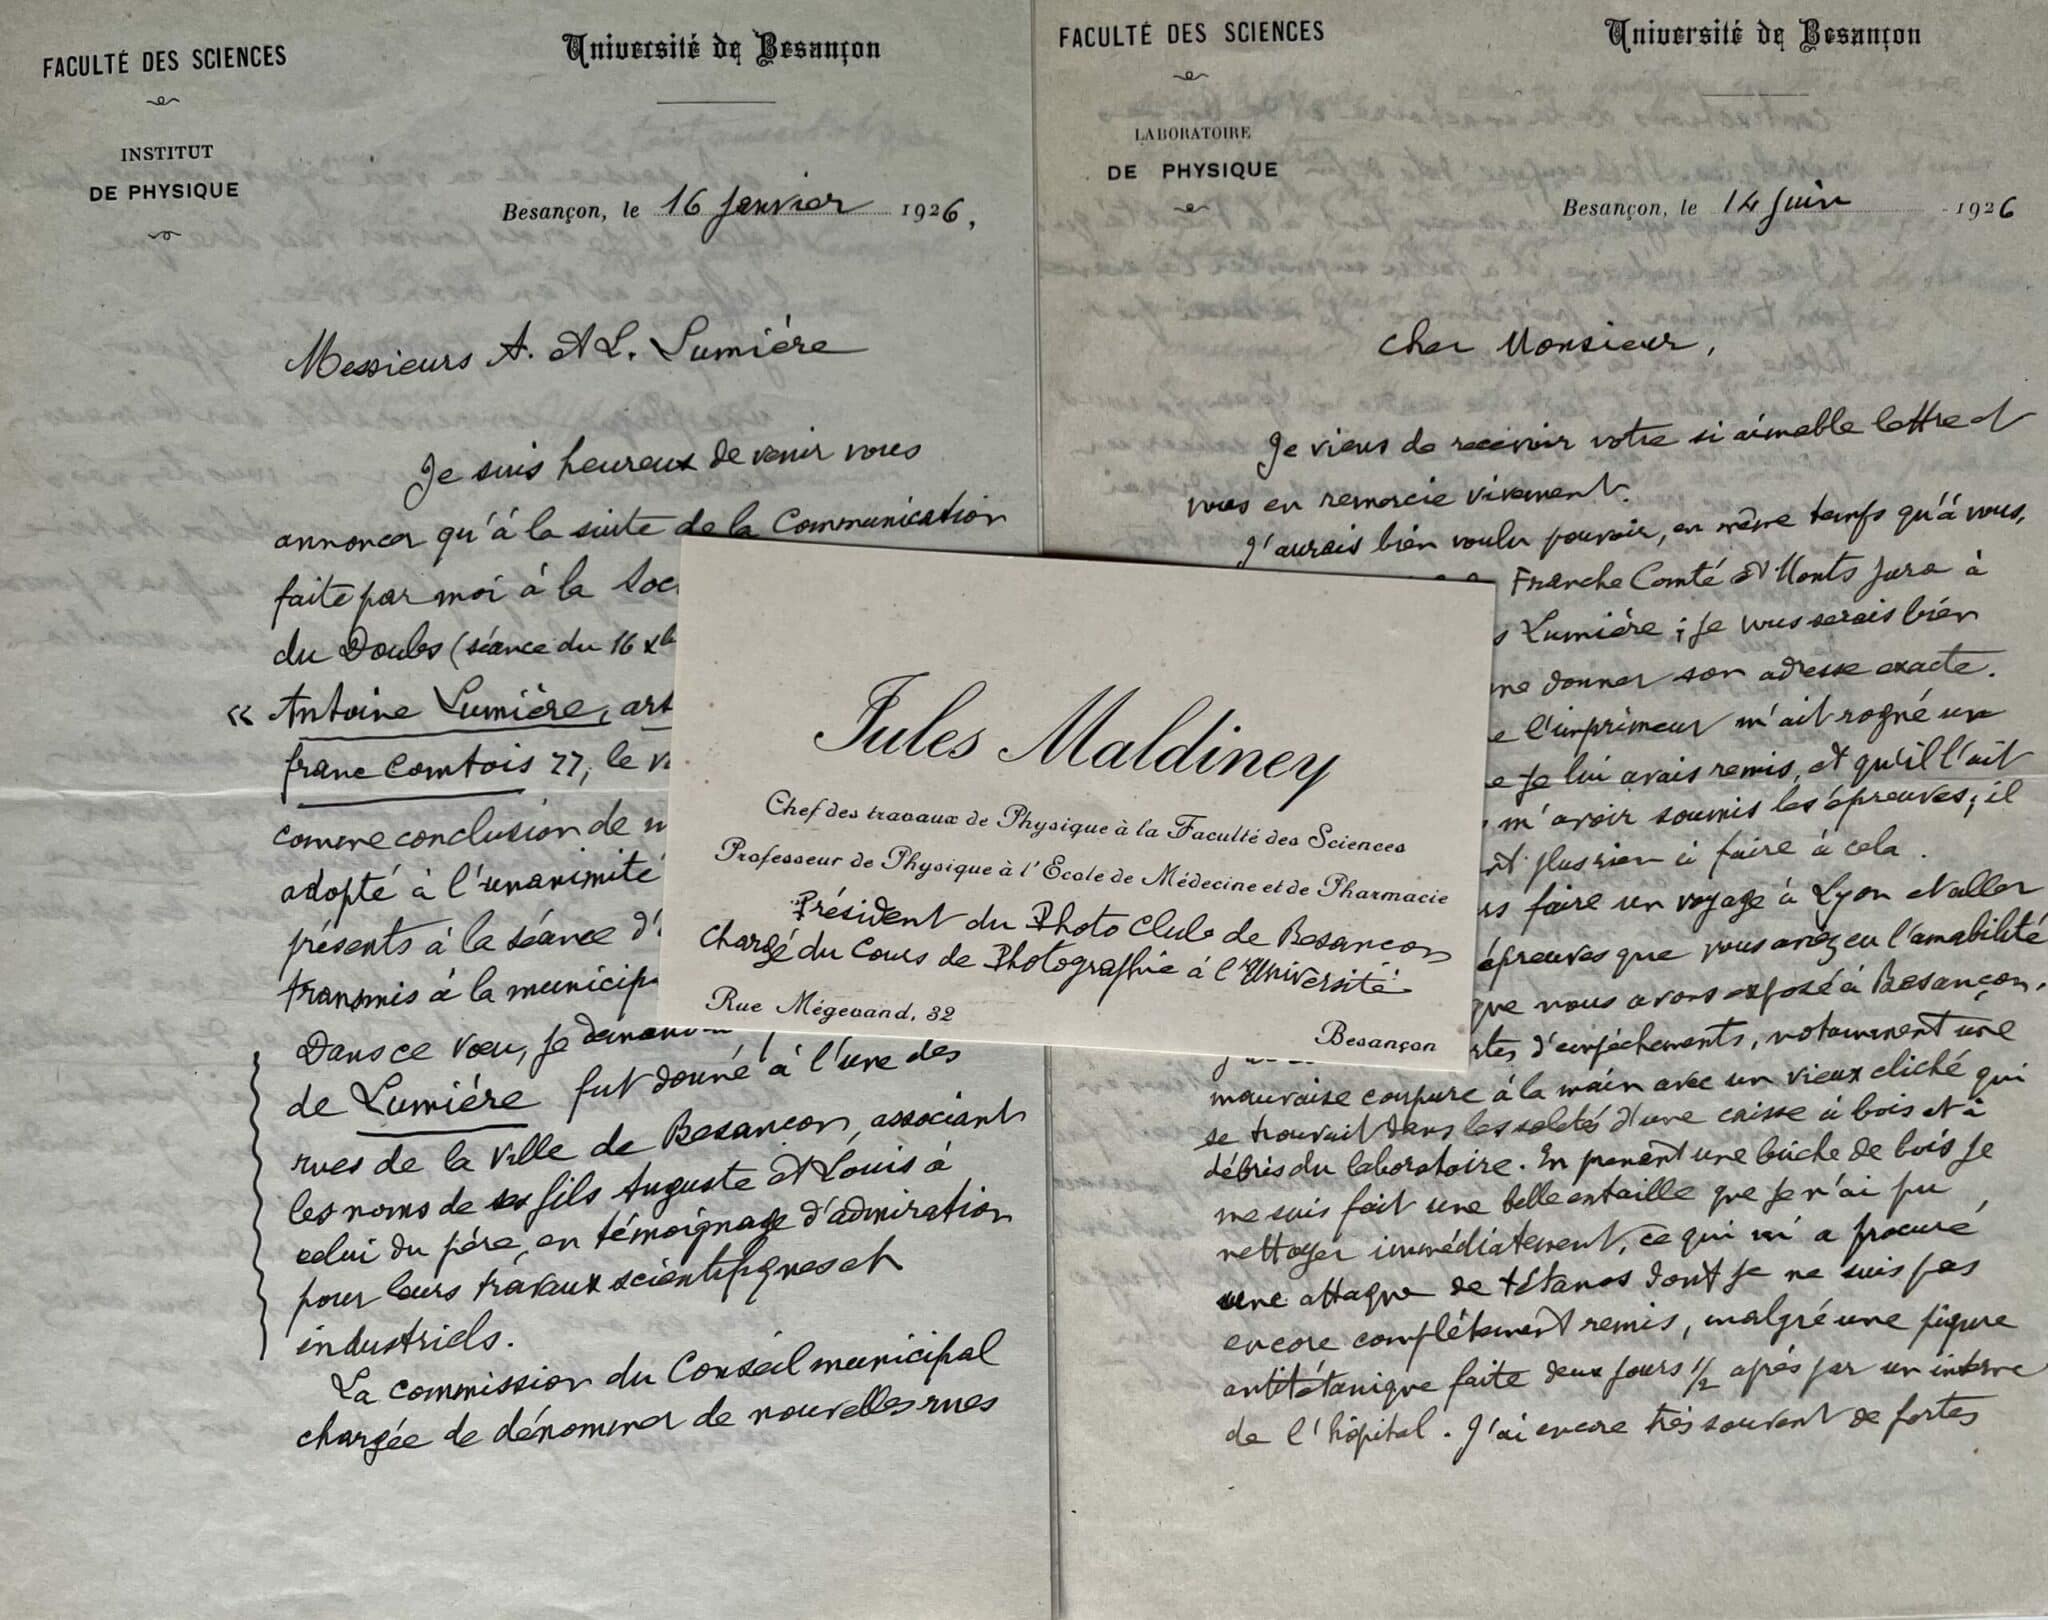 FACULTÉ DES SCIENCES
Université de Besançon
INSTITUT
DE PHYSIQUE
Besançon, le 16 Janvier 1926,
Messieurs A. et L. Lumière
Je suis heureux de venir vous
annoncer qu'à la suite de la Communication
faite par moi à la Soc
du Doubs (séance du 16 xb
« Antoine Lumière, art
franc comtois », le v
comme conclusion de m
adopté à l'unanimité
présents à la séance d'
transmis à la municip
Dans ce vœu, je demandai
de Lumière fut donné à l'une des
rues de la Ville de Besançon, associant
les noms de ses fils Auguste et Louis à
celui du père, en témoignage d'admiration
pour leurs travaux scientifiques et
industriels.
La commission du Conseil municipal
chargée de dénommer de nouvelles rues
FACULTÉ DES SCIENCES
Université de Besançon
LABORATOIRE
DE PHYSIQUE
Besançon, le 14 Juin 1926
Cher Monsieur,
Je viens de recevoir votre si aimable lettre et
vous en remercie vivement.
J'aurais bien voulu pouvoir, en même temps qu'à vous,
Franche Comté et Monts Jura à
s Lumière ; je vous serais bien
me donner son adresse exacte.
e l'imprimeur m'ait rogné un
e je lui avais remis, et qu'il l'ait
m'avoir soumis les épreuves ; il
nt plus rien à faire à cela.
rs faire un voyage à Lyon et aller
épreuves que vous avez eu l'amabilité
que nous avons exposé à Besançon.
rtes d'empêchements, notamment une
mauvaise coupure à la main avec un vieux cliché qui
se trouvait dans les saletés d'une caisse à bois et à
débris du laboratoire. En prenant une bûche de bois je
me suis fait une belle entaille que je n'ai pu
nettoyer immédiatement, ce qui m'a procuré
une attaque de tétanos dont je ne suis pas
encore complètement remis, malgré une piqure
antitétanique faite deux jours 1/2 après par un interne
de l'hôpital. J'ai encore très souvent de fortes
Jules Maldiney
Chef des travaux de Physique à la Faculté des Sciences
Professeur de Physique à l'Ecole de Médecine et de Pharmacie
Président du Photo Club de Besançon
chargé du Cours de Photographie à l'Université
Rue Mégevand, 32
Besançon